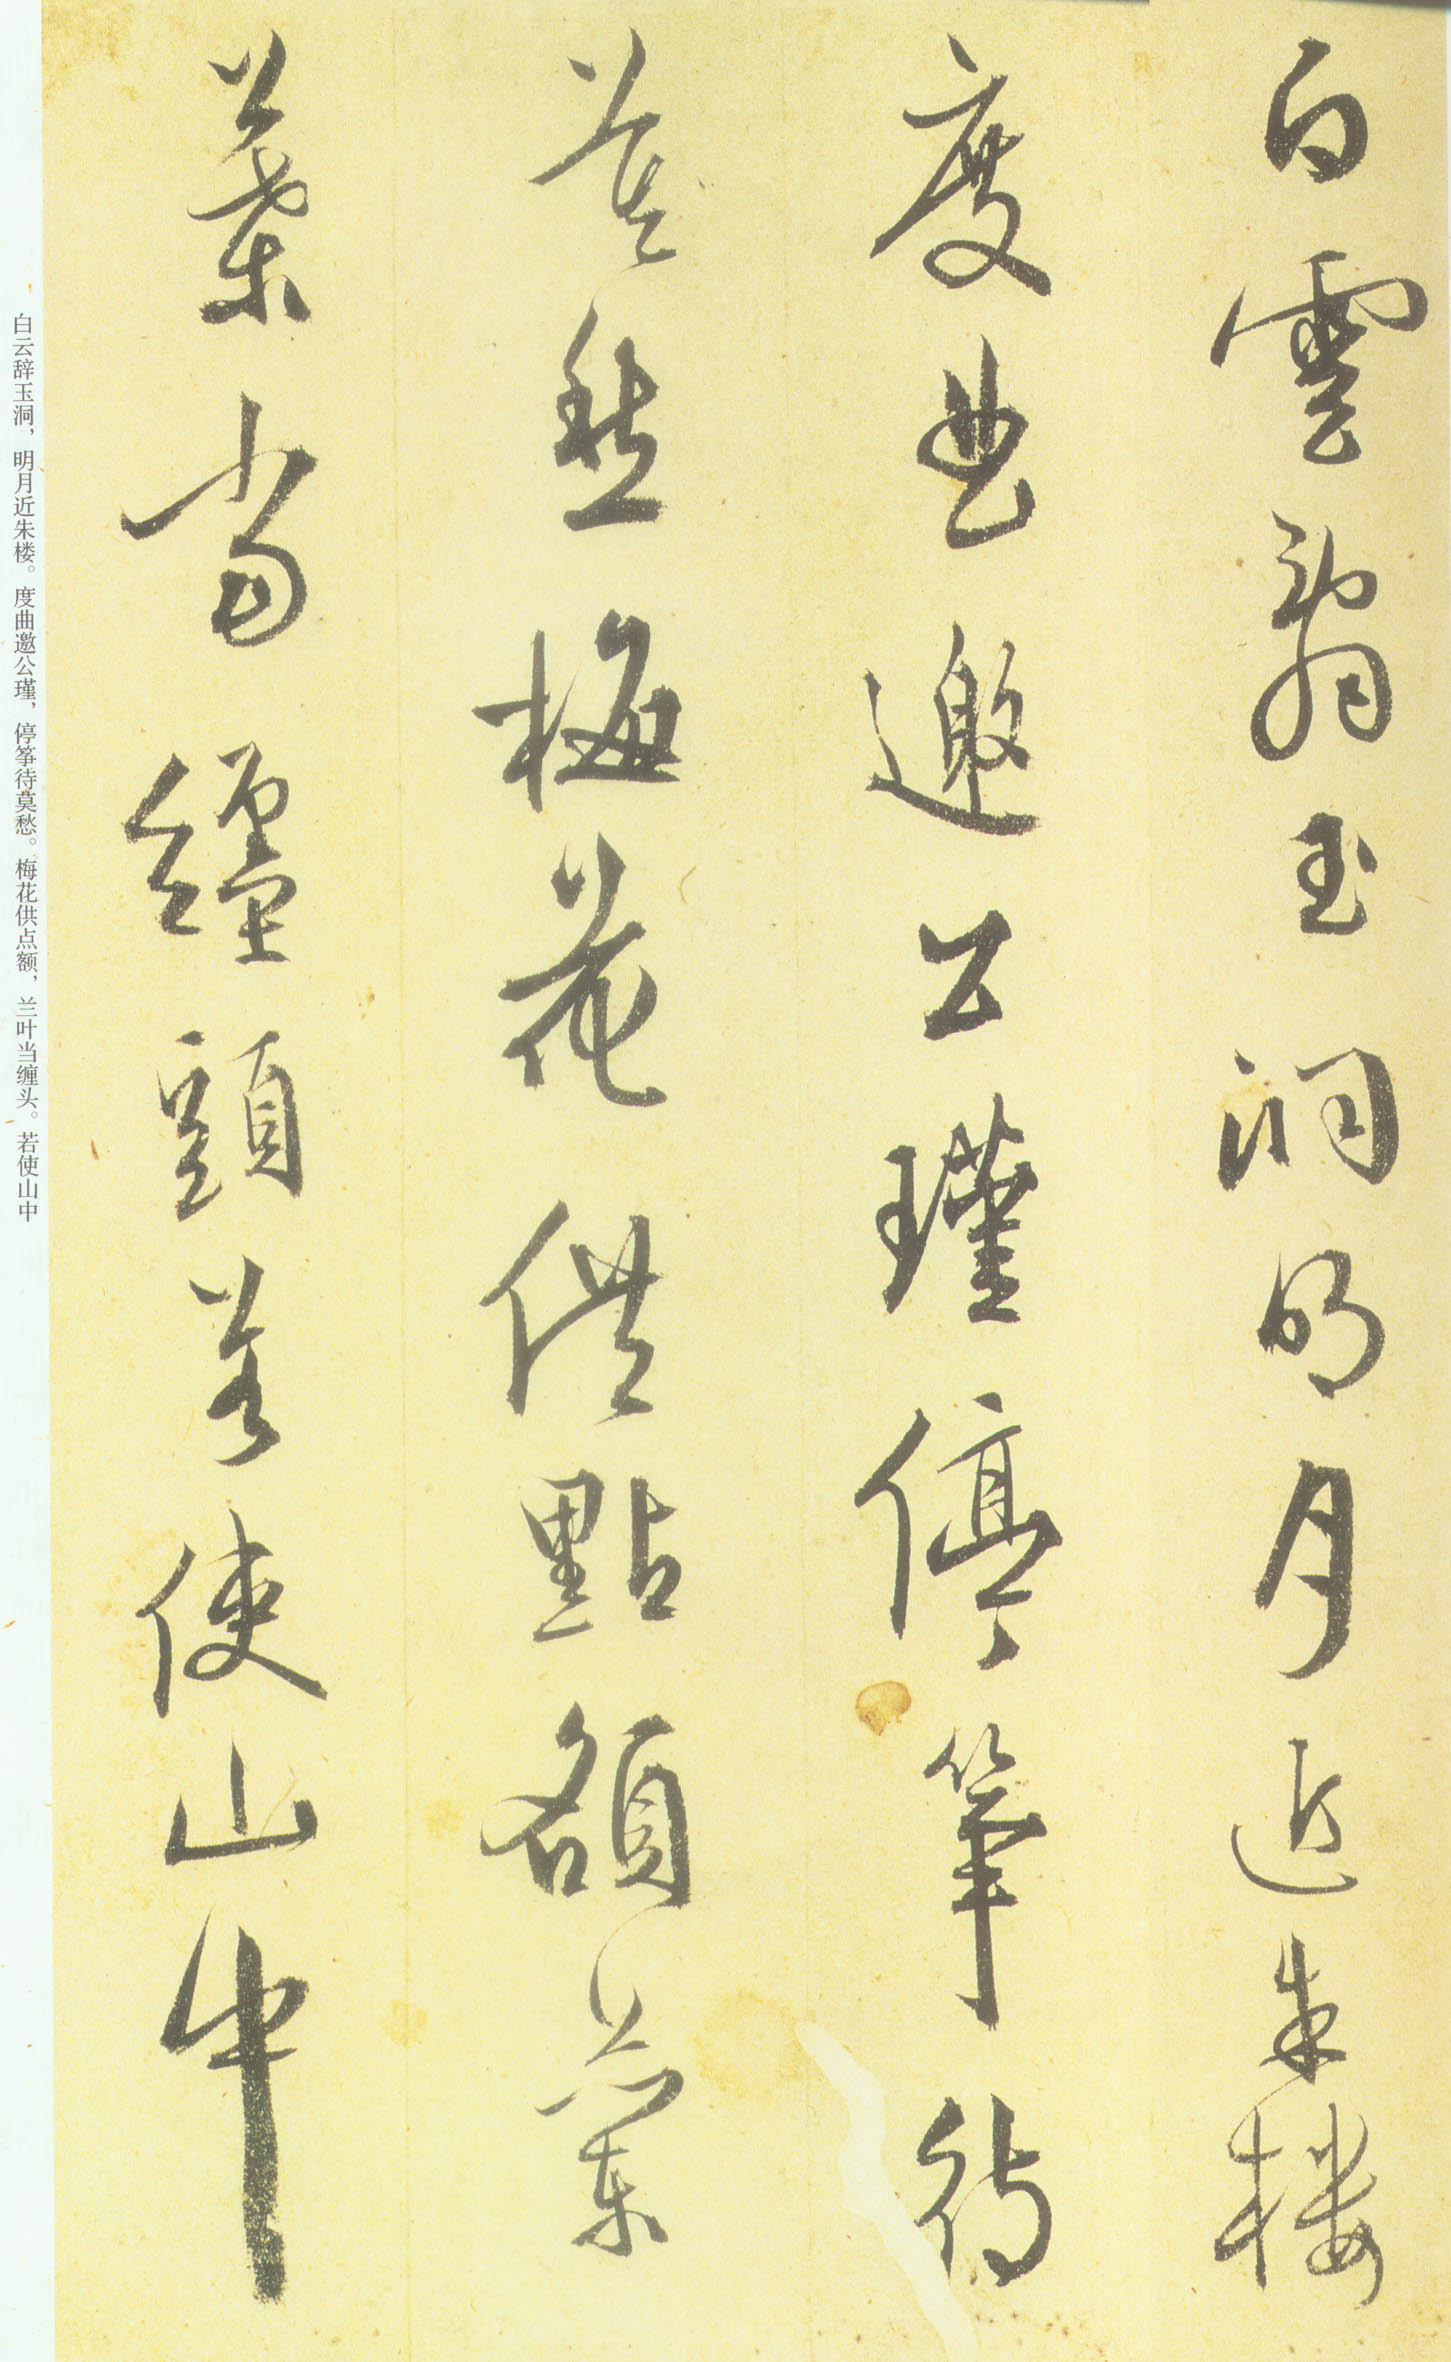 白雲辭玉洞明月近朱樓
度曲邀公瑾停箏待
莫愁梅花供點額蘭
葉當纏頭若使山中
白云辞玉洞，明月近朱楼。度曲邀公瑾，停筝待莫愁。梅花供点额，兰叶当缠头。若使山中